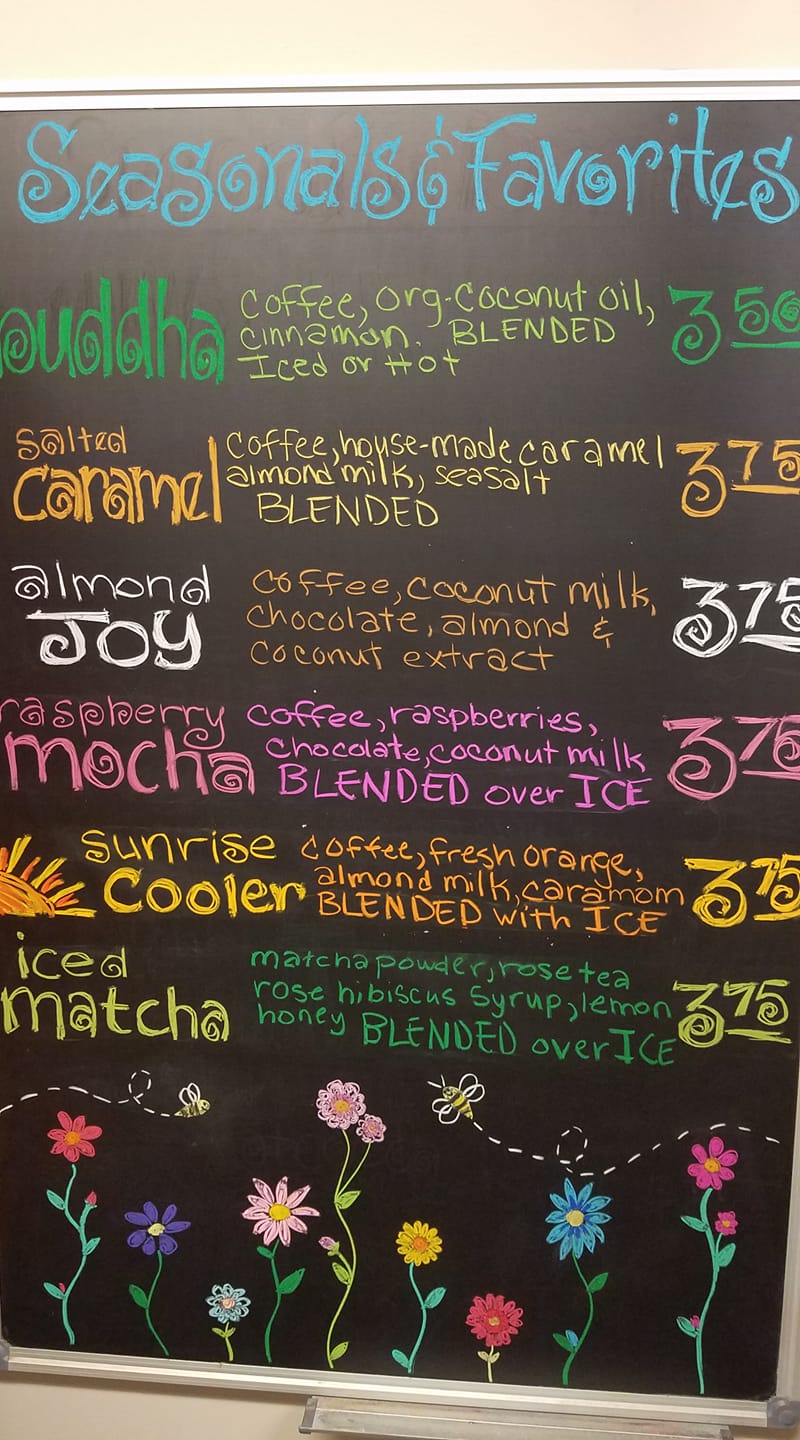 Seasonals & Favorites
buddha
coffee, org. coconut oil,
cinnamon. BLENDED
Iced or Hot
3 50
salted
caramel
coffee, house-made caramel
almond milk, seasalt
BLENDED
3 75
almond
JOY
coffee, coconut milk,
chocolate, almond &
coconut extract
3 75
raspberry
mocha
coffee, raspberries,
chocolate, coconut milk
BLENDED over ICE
3 75
sunrise
Cooler
coffee, fresh orange,
almond milk, caramom
BLENDED with ICE
3 75
iced
matcha
matcha powder, rose tea
rose hibiscus syrup, lemon
honey BLENDED over ICE
3 75